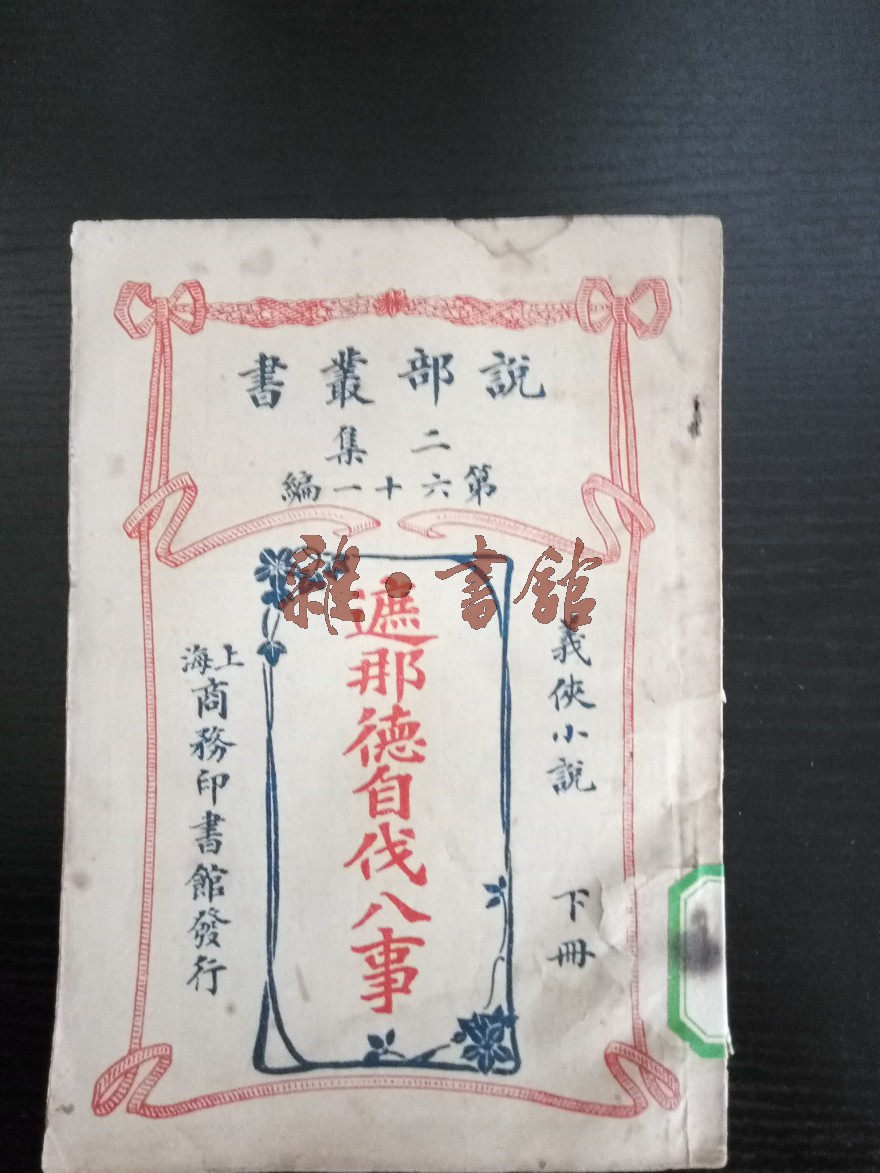 說部叢書
二集
第六十一編
義俠小說 下冊
遮那德自伐八事
上海商務印書館發行
雜·書館